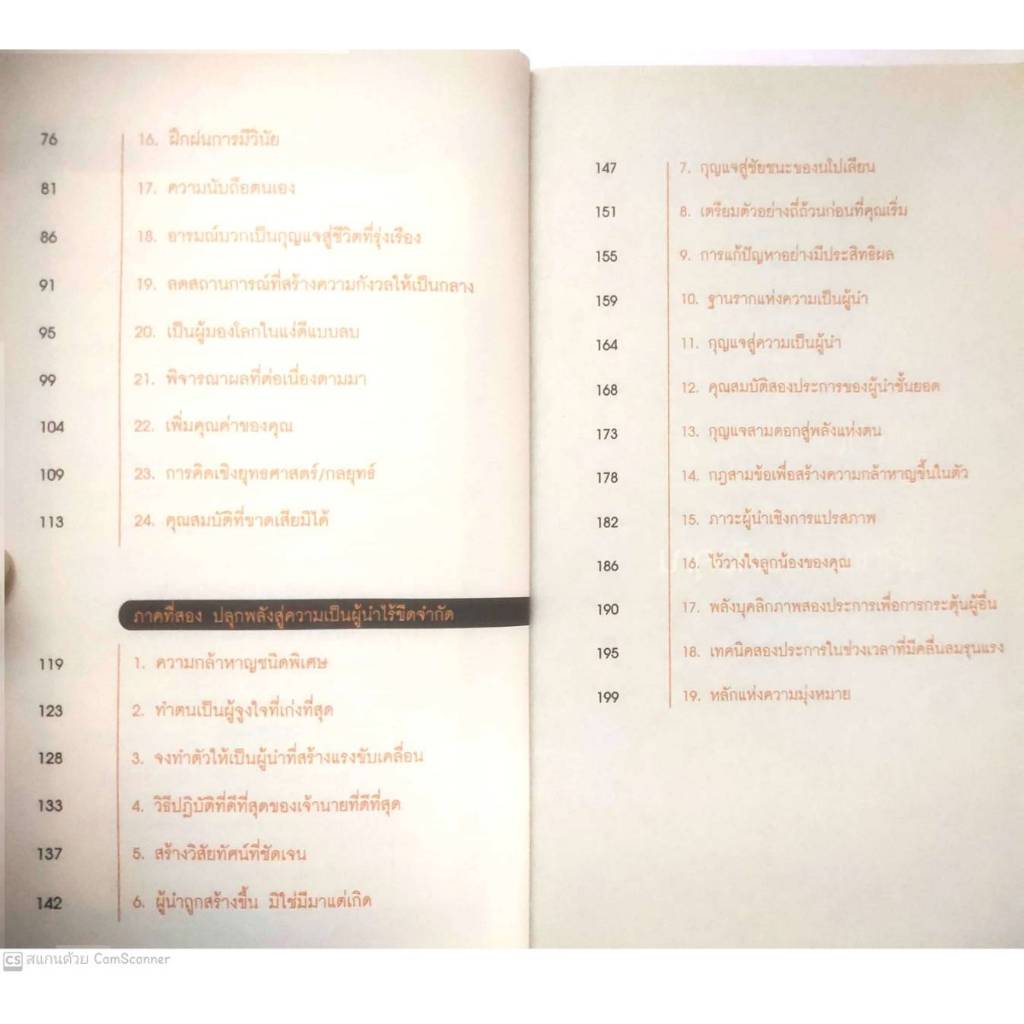 76 16. ฝึกฝนการมีวินัย
81 17. ความนับถือตนเอง
86 18. อารมณ์บวกเป็นกุญแจสู่ชีวิตที่รุ่งเรือง
91 19. ลดสถานการณ์ที่สร้างความกังวลให้เป็นกลาง
95 20. เป็นผู้มองโลกในแง่ดีแบบลบ
99 21. พิจารณาผลที่ต่อเนื่องตามมา
104 22. เพิ่มคุณค่าของคุณ
109 23. การคิดเชิงยุทธศาสตร์/กลยุทธ์
113 24. คุณสมบัติที่ขาดเสียมิได้
ภาคที่สอง ปลุกพลังสู่ความเป็นผู้นำไร้ขีดจำกัด
119 1. ความกล้าหาญชนิดพิเศษ
123 2. ทำตนเป็นผู้จูงใจที่เก่งที่สุด
128 3. จงทำตัวให้เป็นผู้นำที่สร้างแรงขับเคลื่อน
133 4. วิธีปฏิบัติที่ดีที่สุดของเจ้านายที่ดีที่สุด
137 5. สร้างวิสัยทัศน์ที่ชัดเจน
142 6. ผู้นำถูกสร้างขึ้น มิใช่มีมาแต่เกิด
147 7. กุญแจสู่ชัยชนะของนโปเลียน
151 8. เตรียมตัวอย่างถี่ถ้วนก่อนที่คุณเริ่ม
155 9. การแก้ปัญหาอย่างมีประสิทธิผล
159 10. ฐานรากแห่งความเป็นผู้นำ
164 11. กุญแจสู่ความเป็นผู้นำ
168 12. คุณสมบัติสองประการของผู้นำชั้นยอด
173 13. กุญแจสามดอกสู่พลังแห่งตน
178 14. กฎสามข้อเพื่อสร้างความกล้าหาญขึ้นในตัว
182 15. ภาวะผู้นำเชิงการแปรสภาพ
186 16. ไว้วางใจลูกน้องของคุณ
190 17. พลังบุคลิกภาพสองประการเพื่อการกระตุ้นผู้อื่น
195 18. เทคนิคสองประการในช่วงเวลาที่มีคลื่นลมรุนแรง
199 19. หลักแห่งความมุ่งหมาย
CS สแกนด้วย CamScanner